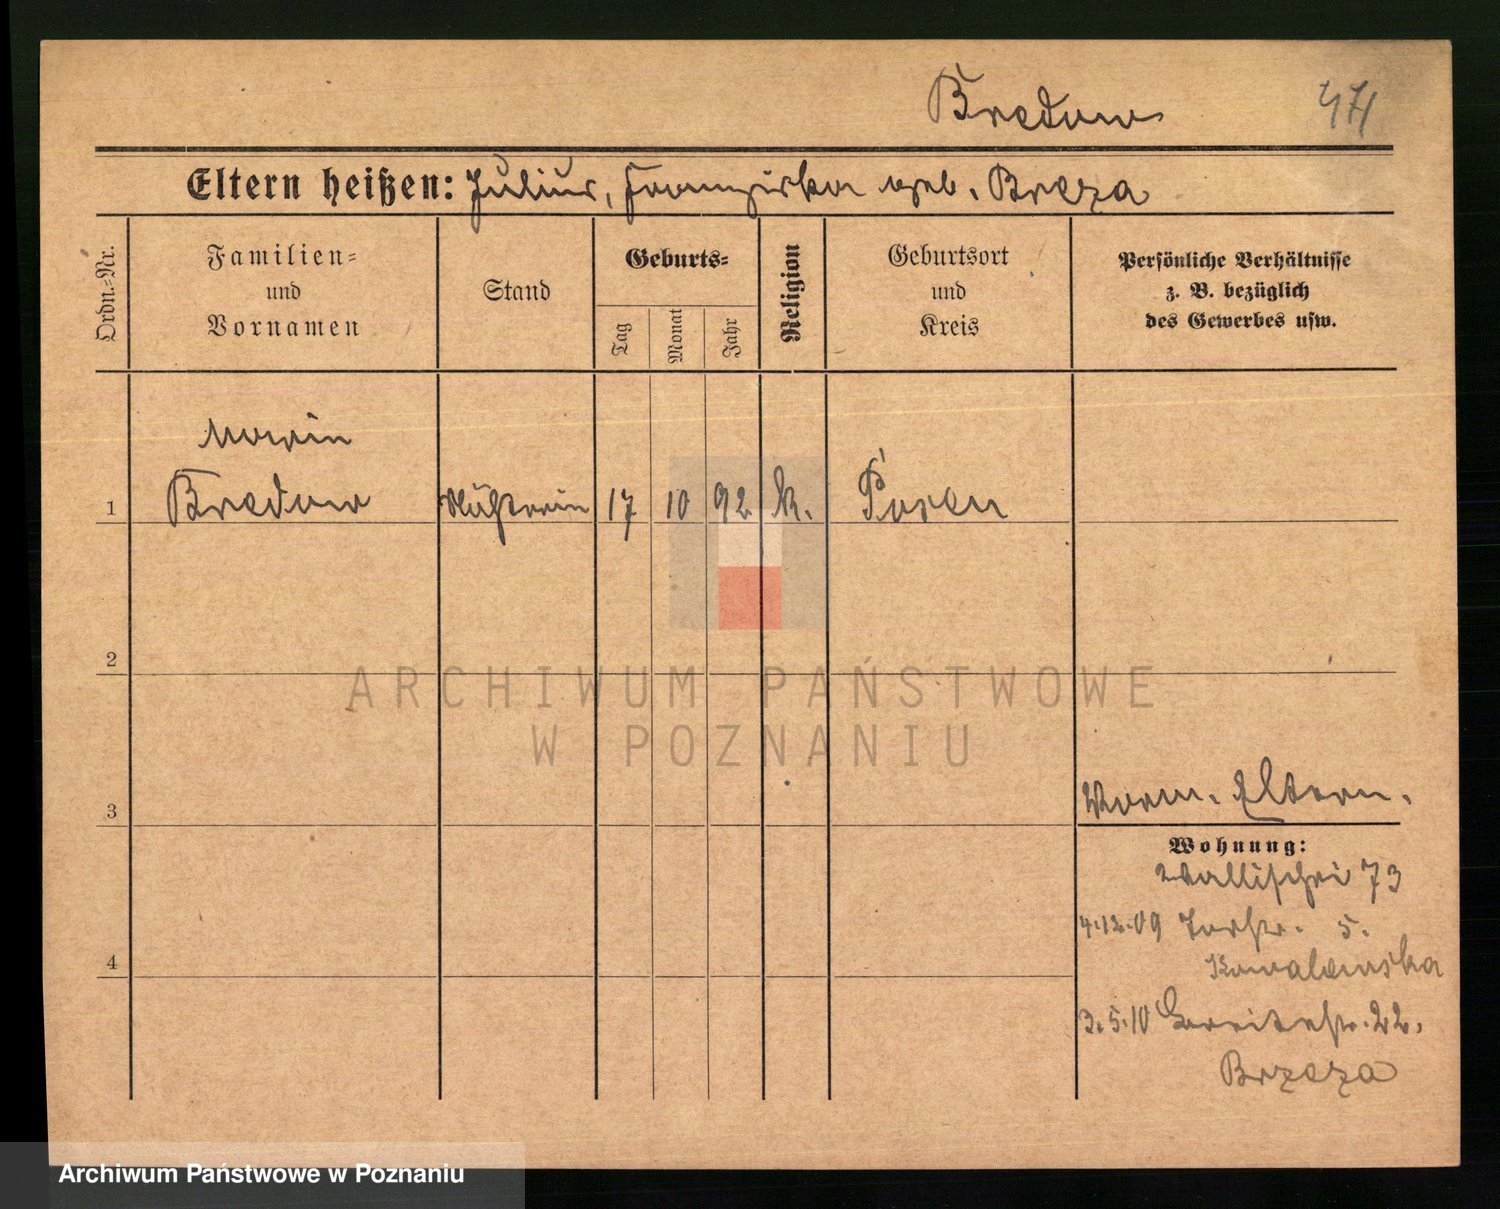 Bredow 471
Eltern heißen: Julius, Franziska geb. Breza
Ordn.-Nr.
Familien-
und
Vornamen
Stand
Geburts-
Tag
Monat
Jahr
Religion
Geburtsort
und
Kreis
Persönliche Verhältnisse
z. B. bezüglich
des Gewerbes usw.
Maria
1 Bredow Nähterin 17 10 92 k. Posen
2
ARCHIWUM PAŃSTWOWE
W POZNANIU
3 Eltern.
Wohnung:
Wallischei 73
4.12.09 Torstr. 5.
Kowalewska
3.5.10 Breitestr. 22.
4
Brzeza
Archiwum Państwowe w Poznaniu